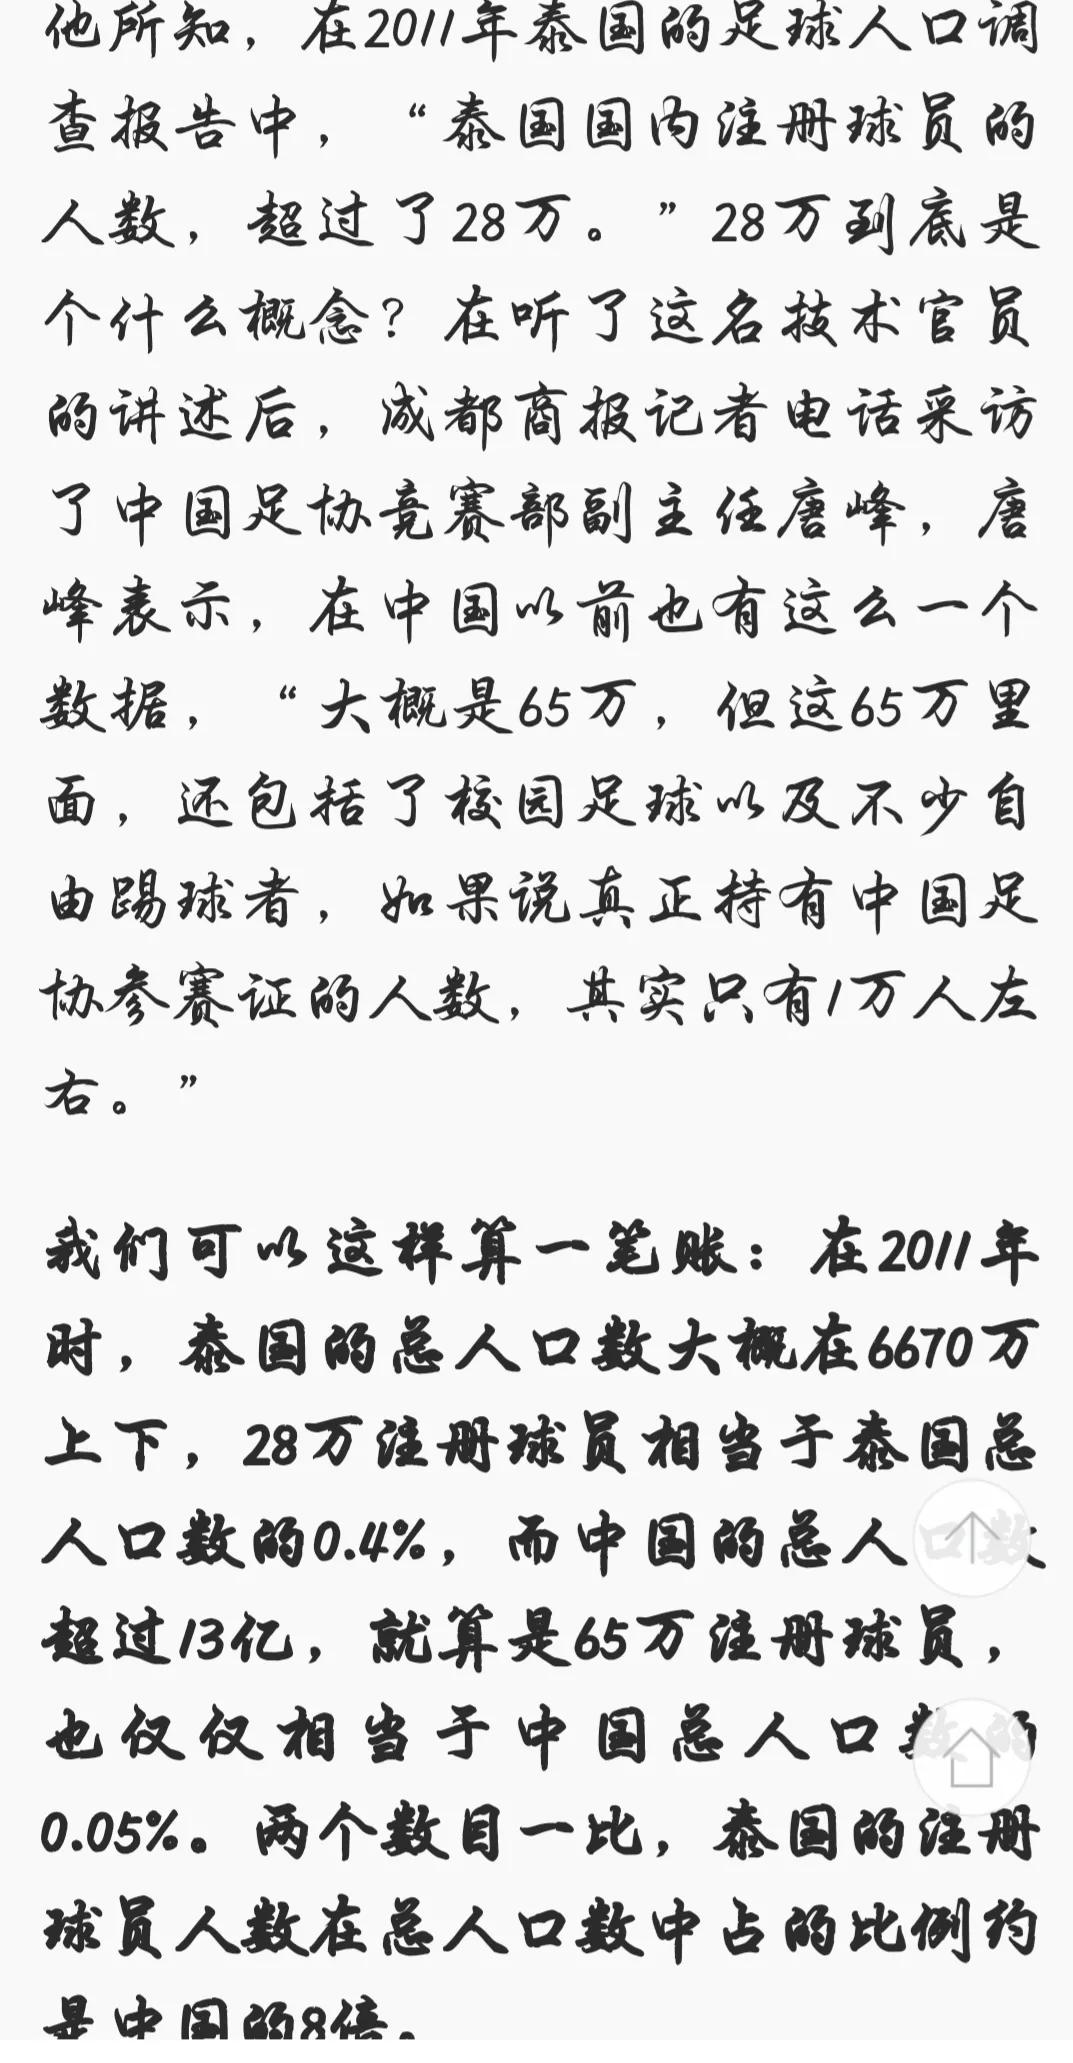 他所知，在2011年泰国的足球人口调
查报告中，“泰国国内注册球员的
人数，超过了28万。”28万到底是
个什么概念？在听了这名技术官员
的讲述后，成都商报记者电话采访
了中国足协竞赛部副主任唐峰，唐
峰表示，在中国以前也有这么一个
数据，“大概是65万，但这65万里
面，还包括了校园足球以及不少自
由踢球者，如果说真正持有中国足
协参赛证的人数，其实只有1万人左
右。”
我们可以这样算一笔账：在2011年
时，泰国的总人口数大概在6670万
上下，28万注册球员相当于泰国总
人口数的0.4%，而中国的总人口数
超过13亿，就算是65万注册球员，
也仅仅相当于中国总人口数的
0.05%。两个数目一比，泰国的注册
球员人数在总人口数中占的比例约
是中国的8倍。